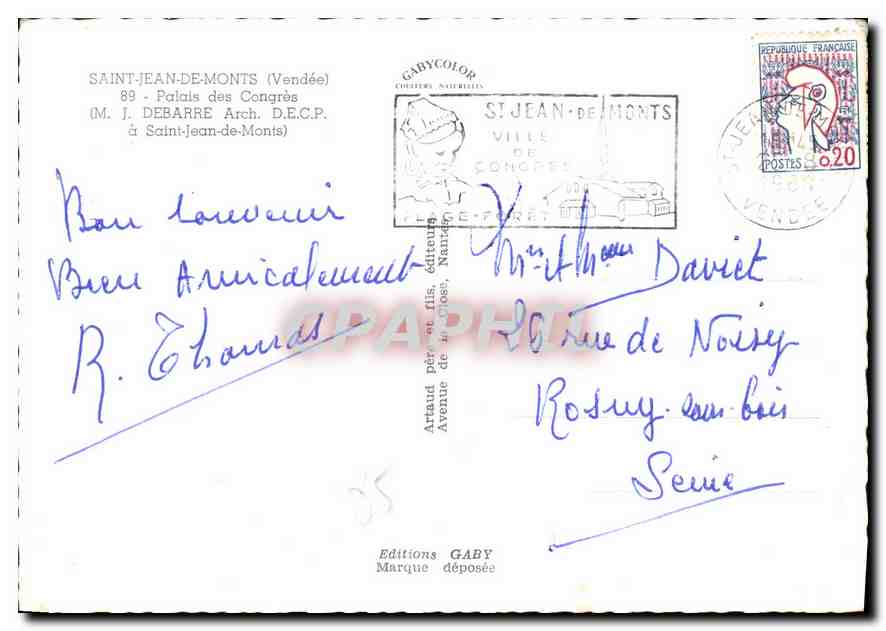 SAINT-JEAN-DE-MONTS (Vendée)
89 - Palais des Congrès
(M. J. DEBARRE Arch. D.E.C.P.
à Saint-Jean-de-Monts)
GABYCOLOR
COULEURS NATURELLES
ST JEAN-DE-MONTS
VILLE
DE
CONGRES
PLAGE-FORÊT
REPUBLIQUE FRANÇAISE
POSTES 0,20
ST-JEAN
VENDEE
Bon souvenir
Bien Amicalement
R. Thomas
Mr et Mme Daviet
26 rue de Noisy
Rosny-sous-bois
Seine
Artaud père et fils, éditeurs
Avenue de la Close, Nantes
CPAPHIL
85
Editions GABY
Marque déposée